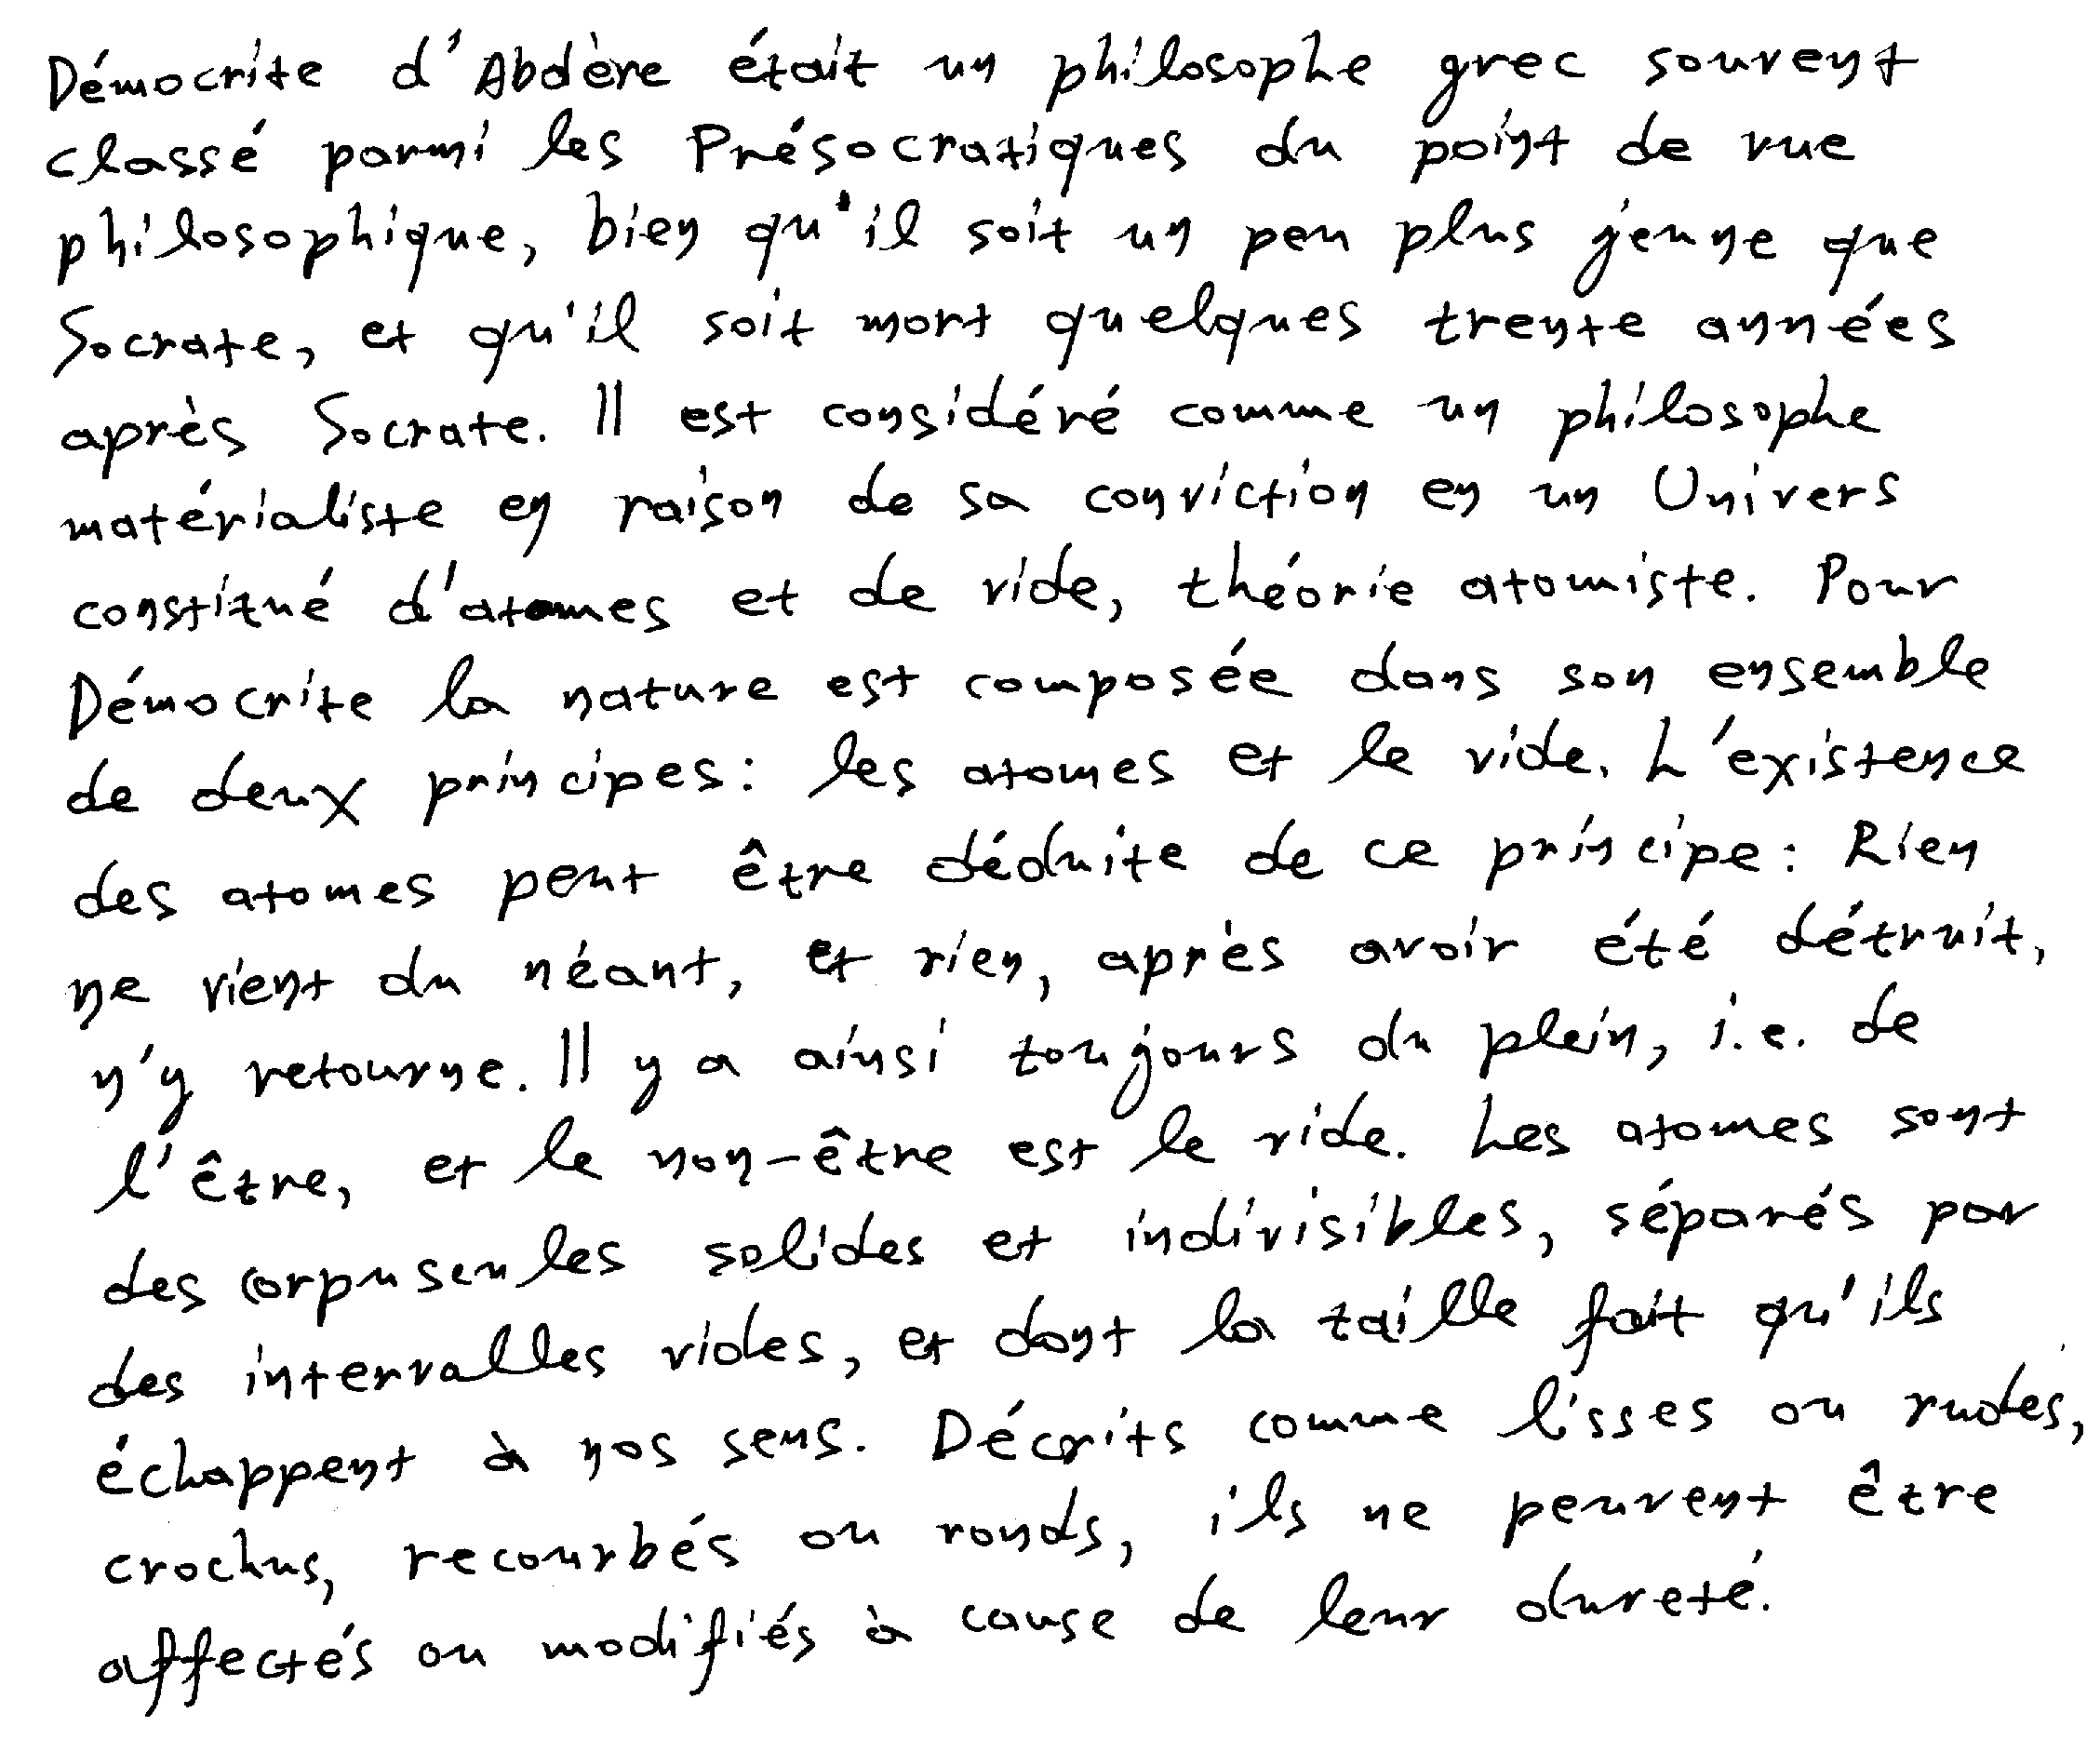 Démocrite d'Abdère était un philosophe grec souvent
classé parmi les Présocratiques du point de vue
philosophique, bien qu'il soit un peu plus jeune que
Socrate, et qu'il soit mort quelques trente années
après Socrate. Il est considéré comme un philosophe
matérialiste en raison de sa conviction en un Univers
constitué d'atomes et de vide, théorie atomiste. Pour
Démocrite la nature est composée dans son ensemble
de deux principes : les atomes et le vide. L'existence
des atomes peut être déduite de ce principe : Rien
ne vient du néant, et rien, après avoir été détruit,
n'y retourne. Il y a ainsi toujours du plein, i.e. de
l'être, et le non-être est le vide. Les atomes sont
des corpuscules solides et indivisibles, séparés par
des intervalles vides, et dont la taille fait qu'ils
échappent à nos sens. Décrits comme lisses ou rudes,
crochus, recourbés ou ronds, ils ne peuvent être
affectés ou modifiés à cause de leur dureté.